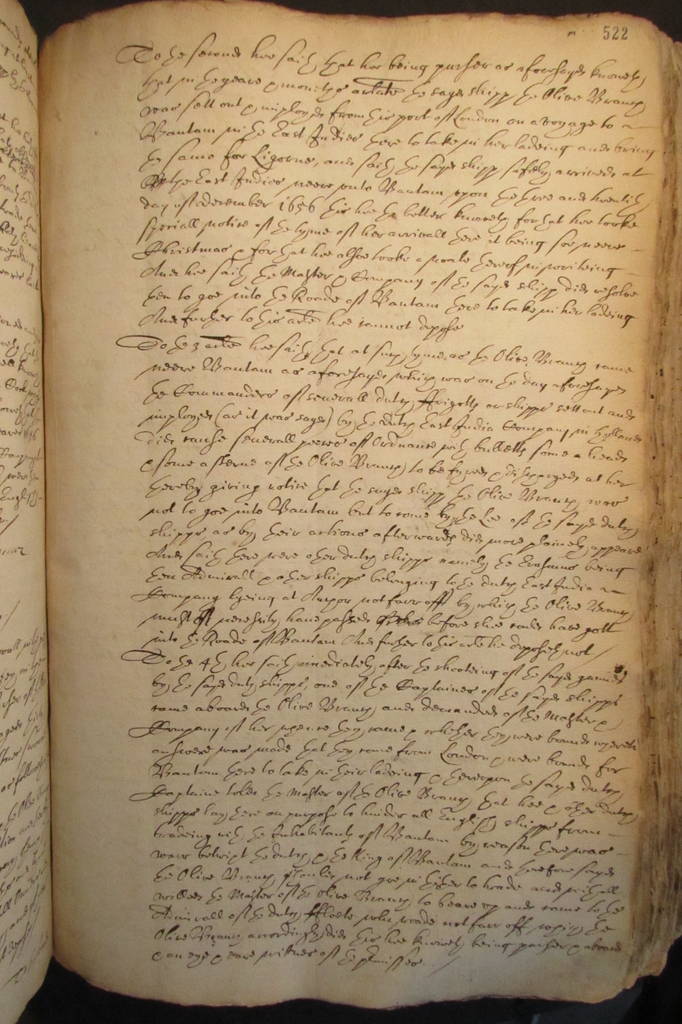 522
To the second hee saith that hee being purser as aforesayd knoweth
that in the yeare & moneths arlate the sayd shipp the Olive Branch
was sett out & imployed from this port of London on a voyage to
Bantam in the East Indies there to take in her ladeing and bring
the same for Ligorne, and saith the sayd shipp safely arrived at
the East Indies neere unto Bantam upon the three and twentith
day of december 1656 this hee the better knoweth for that hee tooke
speciall notice of the tyme of her arrivall there it being soe neere
Christmas & for that hee alsoe tooke a note thereof in writeing
And hee saith the Master & Company of the sayd shipp did resolve
then to goe into the Roade of Bantam there to take in her ladeing
And further to this arle hee cannot depose
To the 3 arle hee saith that at such tyme as the Olive Branch came
neere Bantam as aforesayd which was on the day aforesayd
the Commanders of severall dutch ffrigotts or shipps sett out and
imployed (as it was sayd) by the dutch East India Company in Holland
did cause severall peeces of Ordnance with bulletts some a head
& some a sterne of the Olive Branch to be fyred & dischardged at her
thereby giving notice that the sayd shipp the Olive Branch was
not to goe into Bantam but to come by the Lee of the sayd dutch
shipps as by their actions afterwards did more plainely appeare
And saith there were other dutch shipps namely the Erasmus being
then Admirall & other shipps belonging to the dutch East India
Company lyeing at Anchor not farr off by which the Olive Branch
must of necessity have passed before shee could have gott
into the Roade of Bantam And further to this arle he deposeth not
To the 4th hee saith imediately after the shooteing of the sayd gunnes
by the sayd dutch shipps, one of the Captaines of the sayd shipps
came aboard the Olive Branch and demanded of the Master &
Company of her whence they came & whither they were bound whereto
answere was made that they came from London & were bound for
Bantam there to take in their ladeing & thereupon the sayd dutch
Captaine told the Master of the Olive Branch that hee & other dutch
shipps lay there on purpose to hinder all English shipps from
tradeing with the Inhabitants of Bantam by reason there was
warr betwixt the dutch & the King of Bantam and therefore sayd
the Olive Branch should not goe in thither to trade and withall
willed the Master of the Olive Branch to beare up and come to the
Admirall of the dutch ffleete who roade not farr off which the
Olive Branch accordingly did this hee knoweth being purser & aboard
& an eye & eare witnes of the premisses